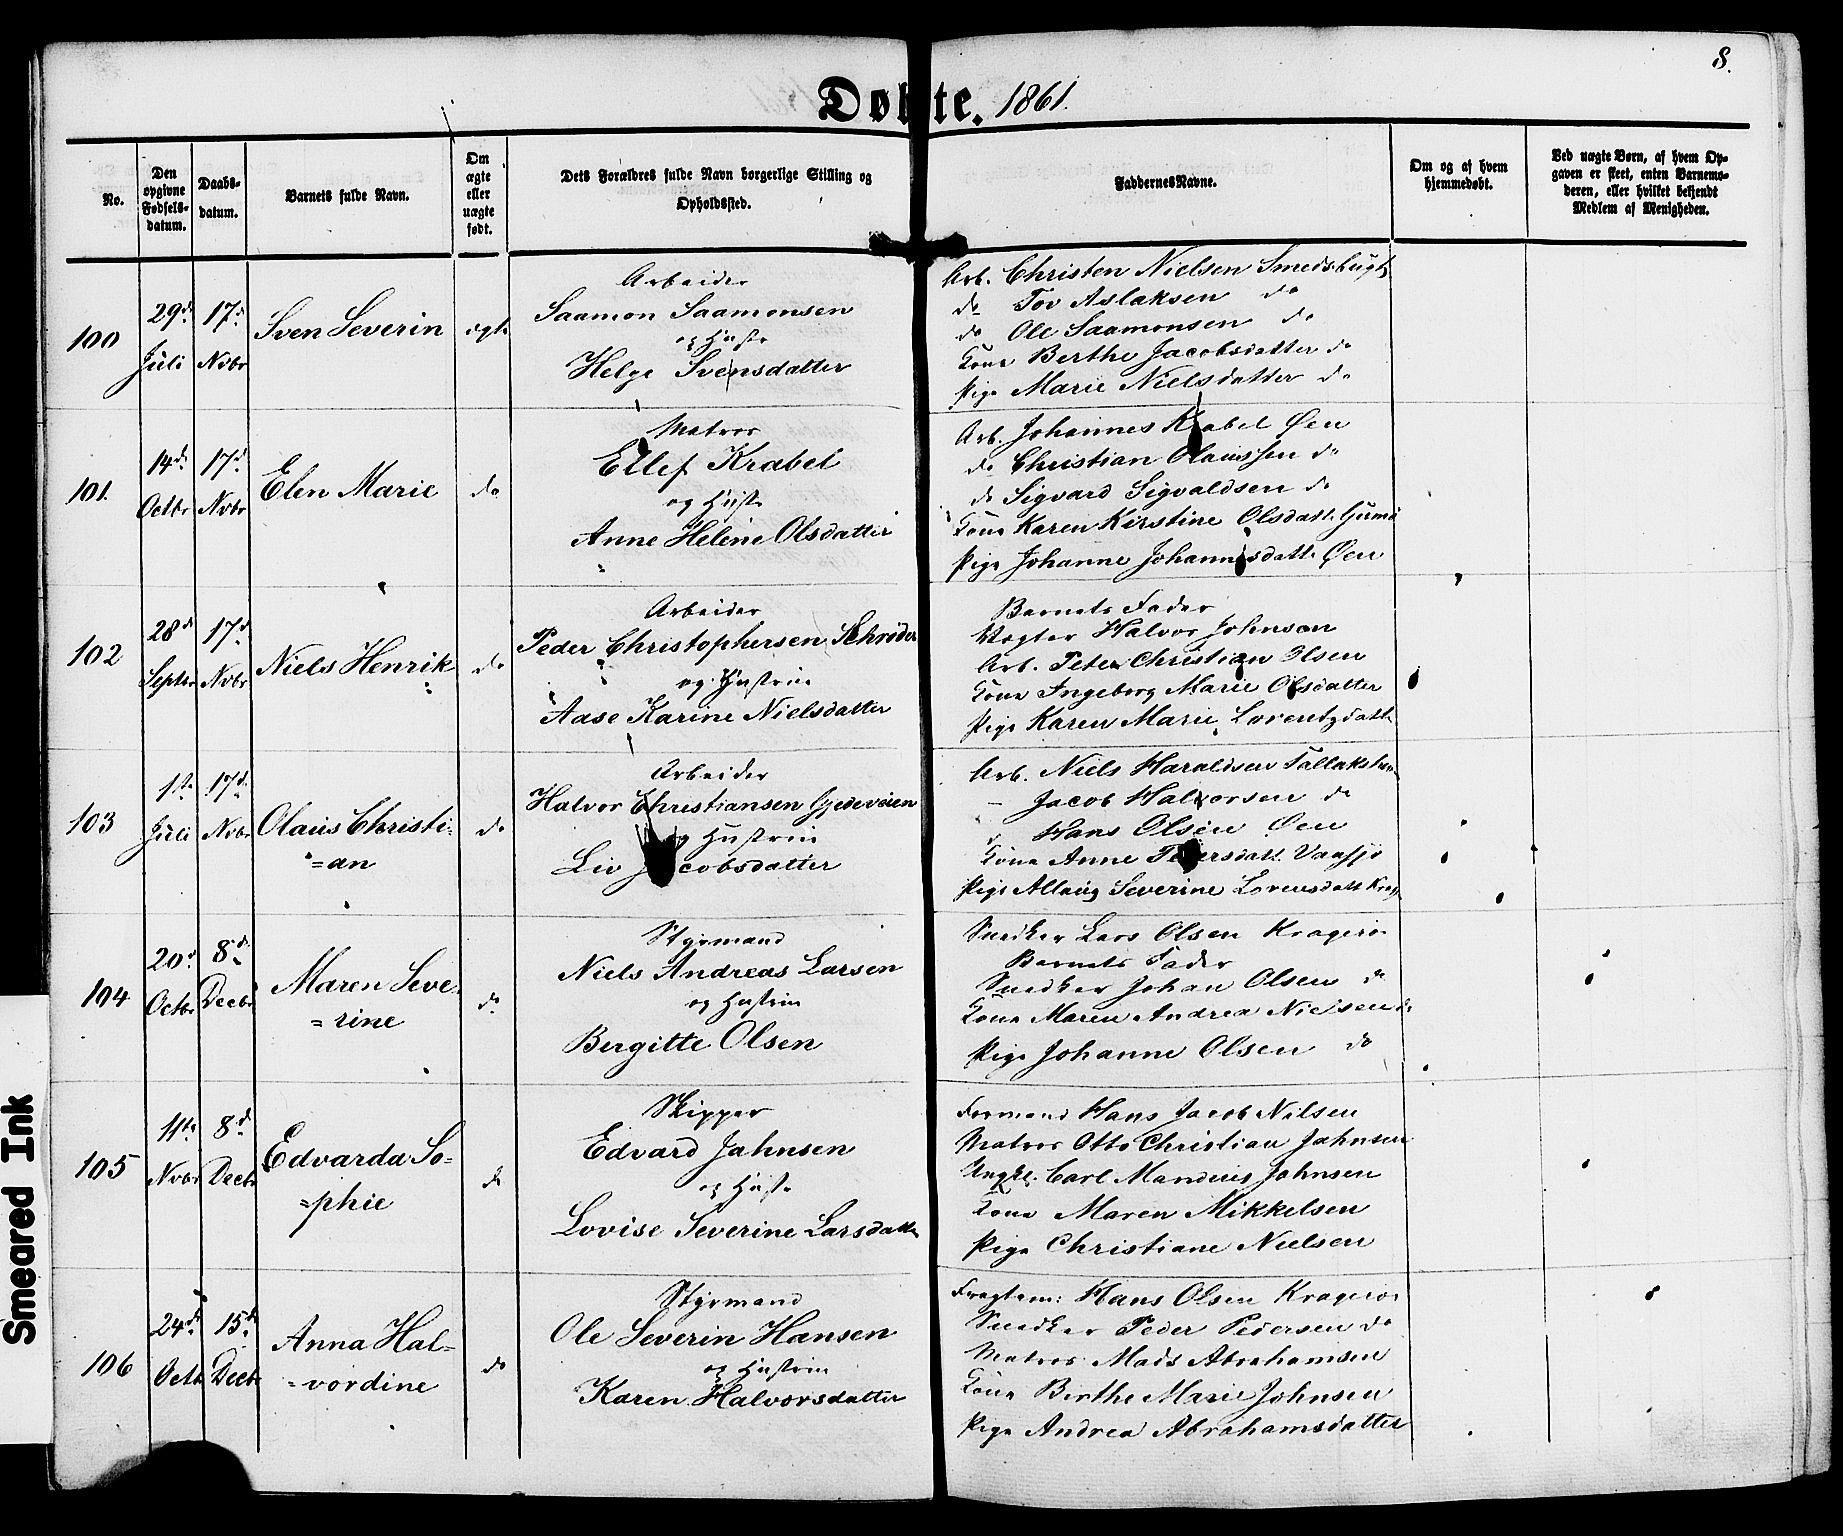 8.
Døbte. 1861.
No.
Den opgivne Fødselsdatum.
Daabsdatum.
Barnets fulde Navn.
Om ægte eller uægte født.
Dets Forældres fulde Navn borgerlige Stilling og Opholdssted.
Faddernes Navne.
Om og af hvem hjemmedøbt.
Ved uægte Børn, af hvem Opgaven er skeet, enten Barnemoderen, eller hvilket bekjendt Medlem af Menigheden.
100
29d Juli
17d Nvbr
Sven Severin
ægte
Arbeider
Saamon Saamonsen
og Hustr
Helge Svensdatter
Arb. Christen Nielsen Smedsbugt
do Tov Aslaksen do
do Ole Saamonsen do
Kone Berthe Jacobsdatter do
Pige Marie Nielsdatter do
101.
14d Octbr
17d Nvbr
Elen Marie
do
Matros
Ellef Krabel
og Hust
Anne Helene Olsdatter
Arb. Johannes Krabel Øen
do Christian Olaussen do
do Sigvard Sigvaldsen do
Kone Karen Kirstine Olsdatt.
Pige Johanne Johannesdatt. Øen
102
28d Septbr
17d Nvbr
Niels Henrik
do
Arbeider
Peder Christophersen Schrøder
og Hustrue
Aase Karine Nielsdatter
Barnets Fader
Vægter Halvor Johnsen
Arb. Peter Christian Olsen
Kone Ingeborg Marie Olsdatter
Pige Karen Marie Lorentzdatt
103
1ste Juli
17d Nvbr
Olaus Christi-
=an
do
Arbeider
Halvor Christiansen Gjedeveien
og Hustrue
Liv Jacobsdatter
Arb. Niels Haraldsen
– Jacob Halvorsen do
Hans Olsen Øen
Kone Anne Pedersdatt.
Pige Allaug Severine Lorensdatt Krag
104
20d Octbr
8d Decbr
Maren Seve-
=rine
do
Styrmand
Niels Andreas Larsen
og Hustrue
Bergitte Olsen
Snedker Lars Olsen Kragerø
Barnets Fader
Snedker Johan Olsen do
Kone Maren Andrea Nielsen do
Pige Johanne Olsen do
105
11te Nvbr
8d Decbr
Edvarda So-
=phie
do
Skipper
Edvard Jahnsen
og Hust
Lovise Severine Larsdatt
Formand Hans Jacob Nilsen
Matros Otto Christian Jahnsen
Ungk. Carl Mandius Johnsen
Kone Maren Mikkelsen
Pige Christiane Nielsen
106
24d Octb
15d Decbr
Anna Hal-
=vordine
do
Styrmand
Ole Severin Hansen
og Hustrue
Karen Halvorsdatter
Fragtem: Hans Olsen Kragerø
Snedker Peder Pedersen do
Matros Mads Abrahamsen
Kone Birthe Marie Johnsen
Pige Andrea Abrahamsdatter
Smeared Ink